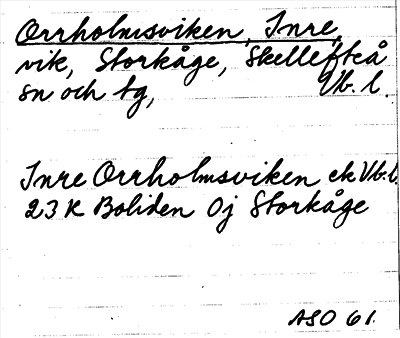 Orrholmsviken, Inre,
vik, Storkåge, Skellefteå
sn och tg, Vb. l.
Inre Orrholmsviken ek Vb. l.
23 K Boliden 0j Storkåge
ASO 61.